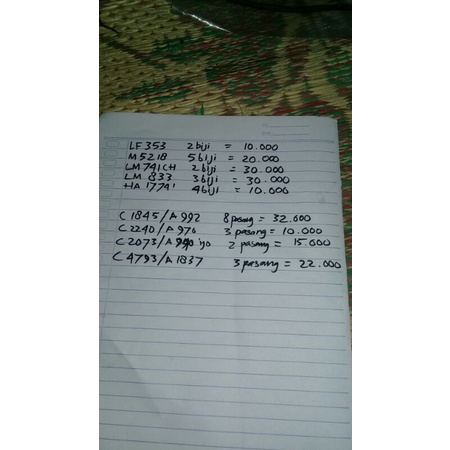 LF 353 2 biji = 10.000
M5218 5 biji = 20.000
LM 741CH 2 biji = 30.000
LM 833 3 biji = 30.000
HA 17741 4 biji = 10.000
C 1845/A 992 8 pasang = 32.000
C 2240/A 970 3 pasang = 10.000
C 2073/A 940 2 pasang = 15.000
C 4793/A 1837 3 pasang = 22.000